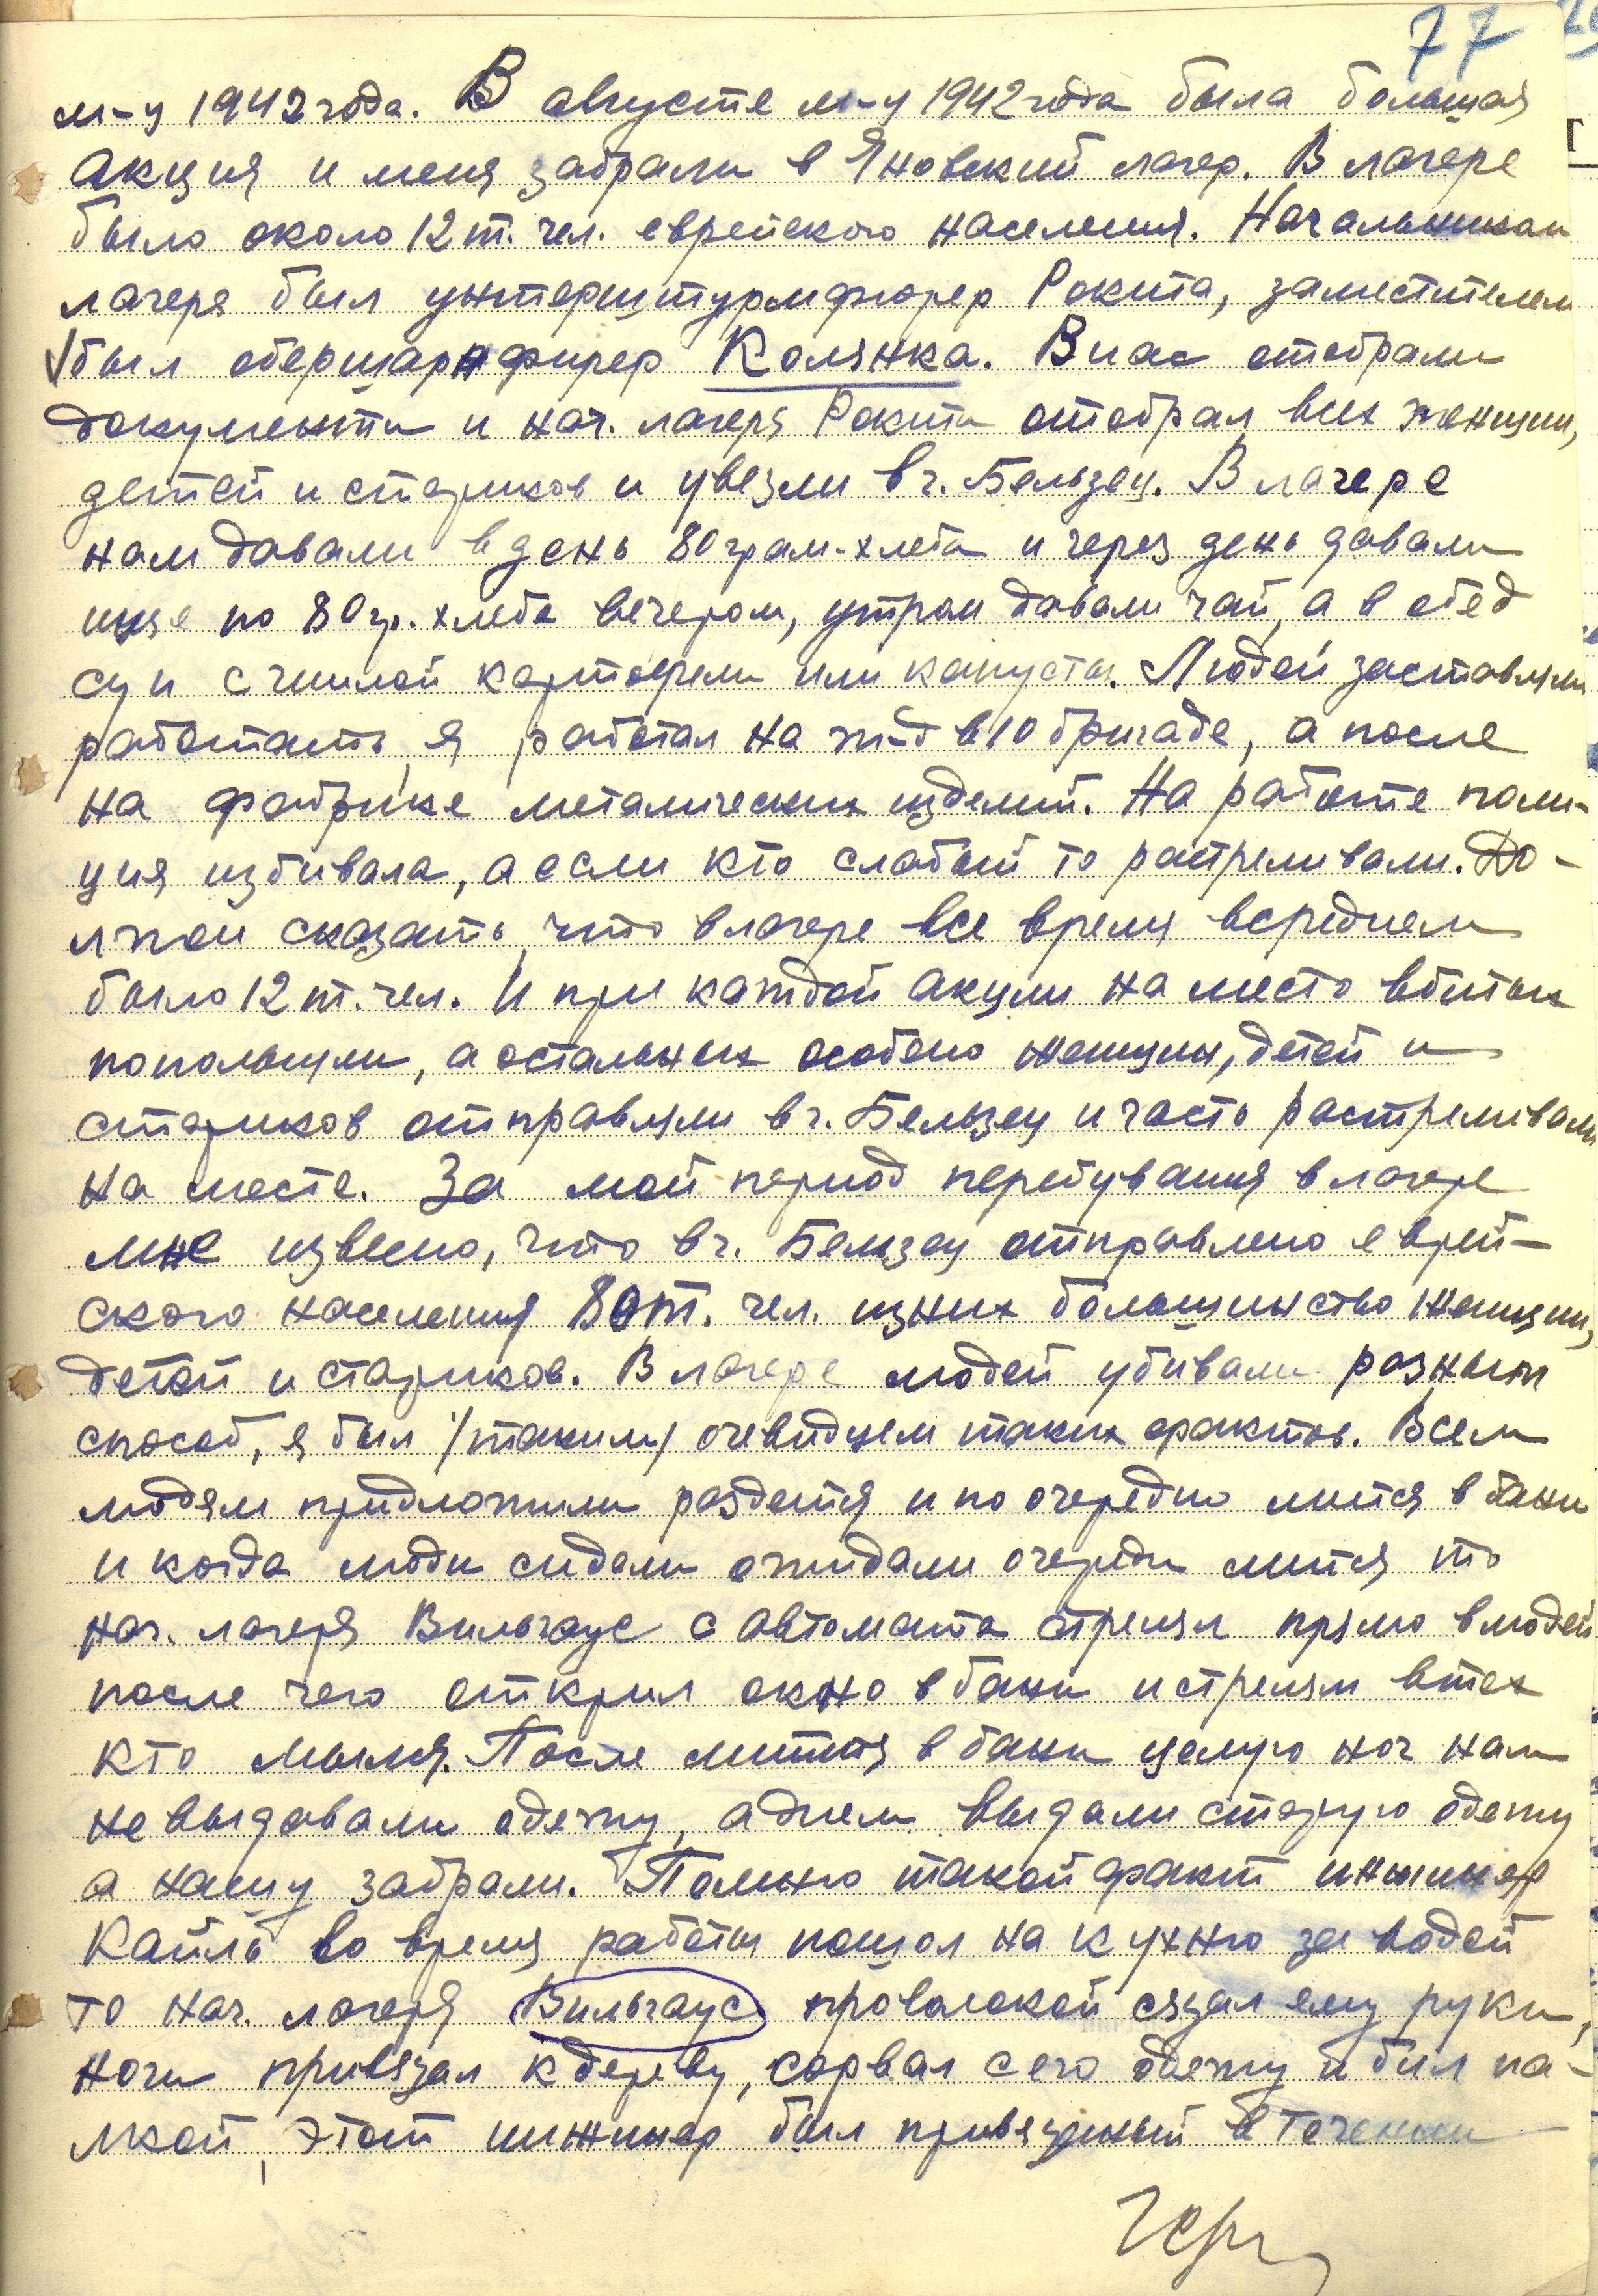 77
м-ц 1942 года. В августе м-ц 1942 года была большая
акция и меня забрали в Яновский лагер. В лагере
было около 12 т. чел. еврейского населения. Начальником
лагеря был унтерштурмфюрер Рокита, заместителем
был обершарфирер Колянка. В нас отобрали
документи и нач. лагеря Рокита отобрал всех женщин,
детей и стариков и увезли в г. Бельзец. В лагере
нам давали в день 80 грам. хлеба и через день давали
ище по 80 гр. хлеба вечером, утром давали чай, а в обед
суп с гнилой картофели или капусты. Людей заставляли
работать, я работал на ж-д в 10 бригаде, а после
на фабрике металических изделий. На работе поли-
ция избивала, а если кто слабый то растреливали. До-
лжен сказать, что в лагере все время в среднем
было 12 т. чел. И при каждой акции на место вбитых
пополняли, а остальных особено женщин, детей и
стариков отправляли в г. Бельзец и часто растреливали
на месте. За мой период перебування в лагере
мне извесно, что в г. Бельзец отправлено еврей-
ского населения 80 т. чел. из них большинство женщин,
детей и стариков. В лагере людей убивали разным
способ, я был /таким/ очевидцем таких фактов. Всем
людям придложили раздется и по очередно мится в бани
и когда люди сидели ожидали очереди мится то
нач. лагеря Вильгаус с автомата стрелял прямо в людей
после чего открил окно в бани и стрелял в тех
кто мылся. После миття в бани целую ноч нам
не выдавали одежу, а днем выдали старую одежу
а нашу забрали. Помню такой факт инжинер
Кайль во время работы пошол на кухню за водой
то нач. лагеря Вильгаус проволокой сязал ему руки,
ноги привязал к дереву, сорвал с его одежу и бил па-
лкой, этот инжинер был привязаный в течении